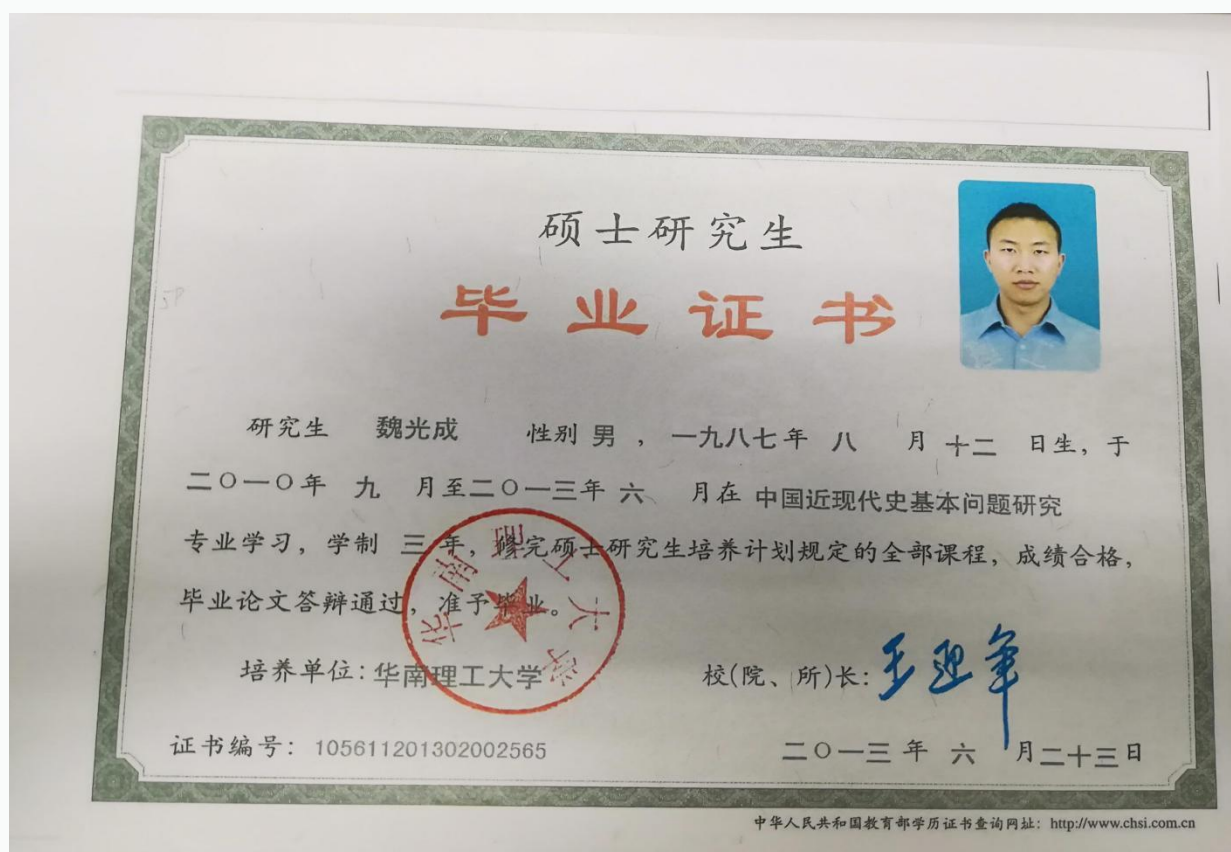 硕士研究生
毕业证书
研究生 魏光成 性别 男 ，一九八七年 八 月 十二 日生，于
二〇一〇年 九 月至二〇一三年 六 月在 中国近现代史基本问题研究
专业学习，学制 三 年，修完硕士研究生培养计划规定的全部课程，成绩合格，
毕业论文答辩通过，准予毕业。
华南理工大学
培养单位：华南理工大学 校(院、所)长：王迎军
证书编号：105611201302002565 二〇一三 年 六 月二十三日
中华人民共和国教育部学历证书查询网址：http://www.chsi.com.cn